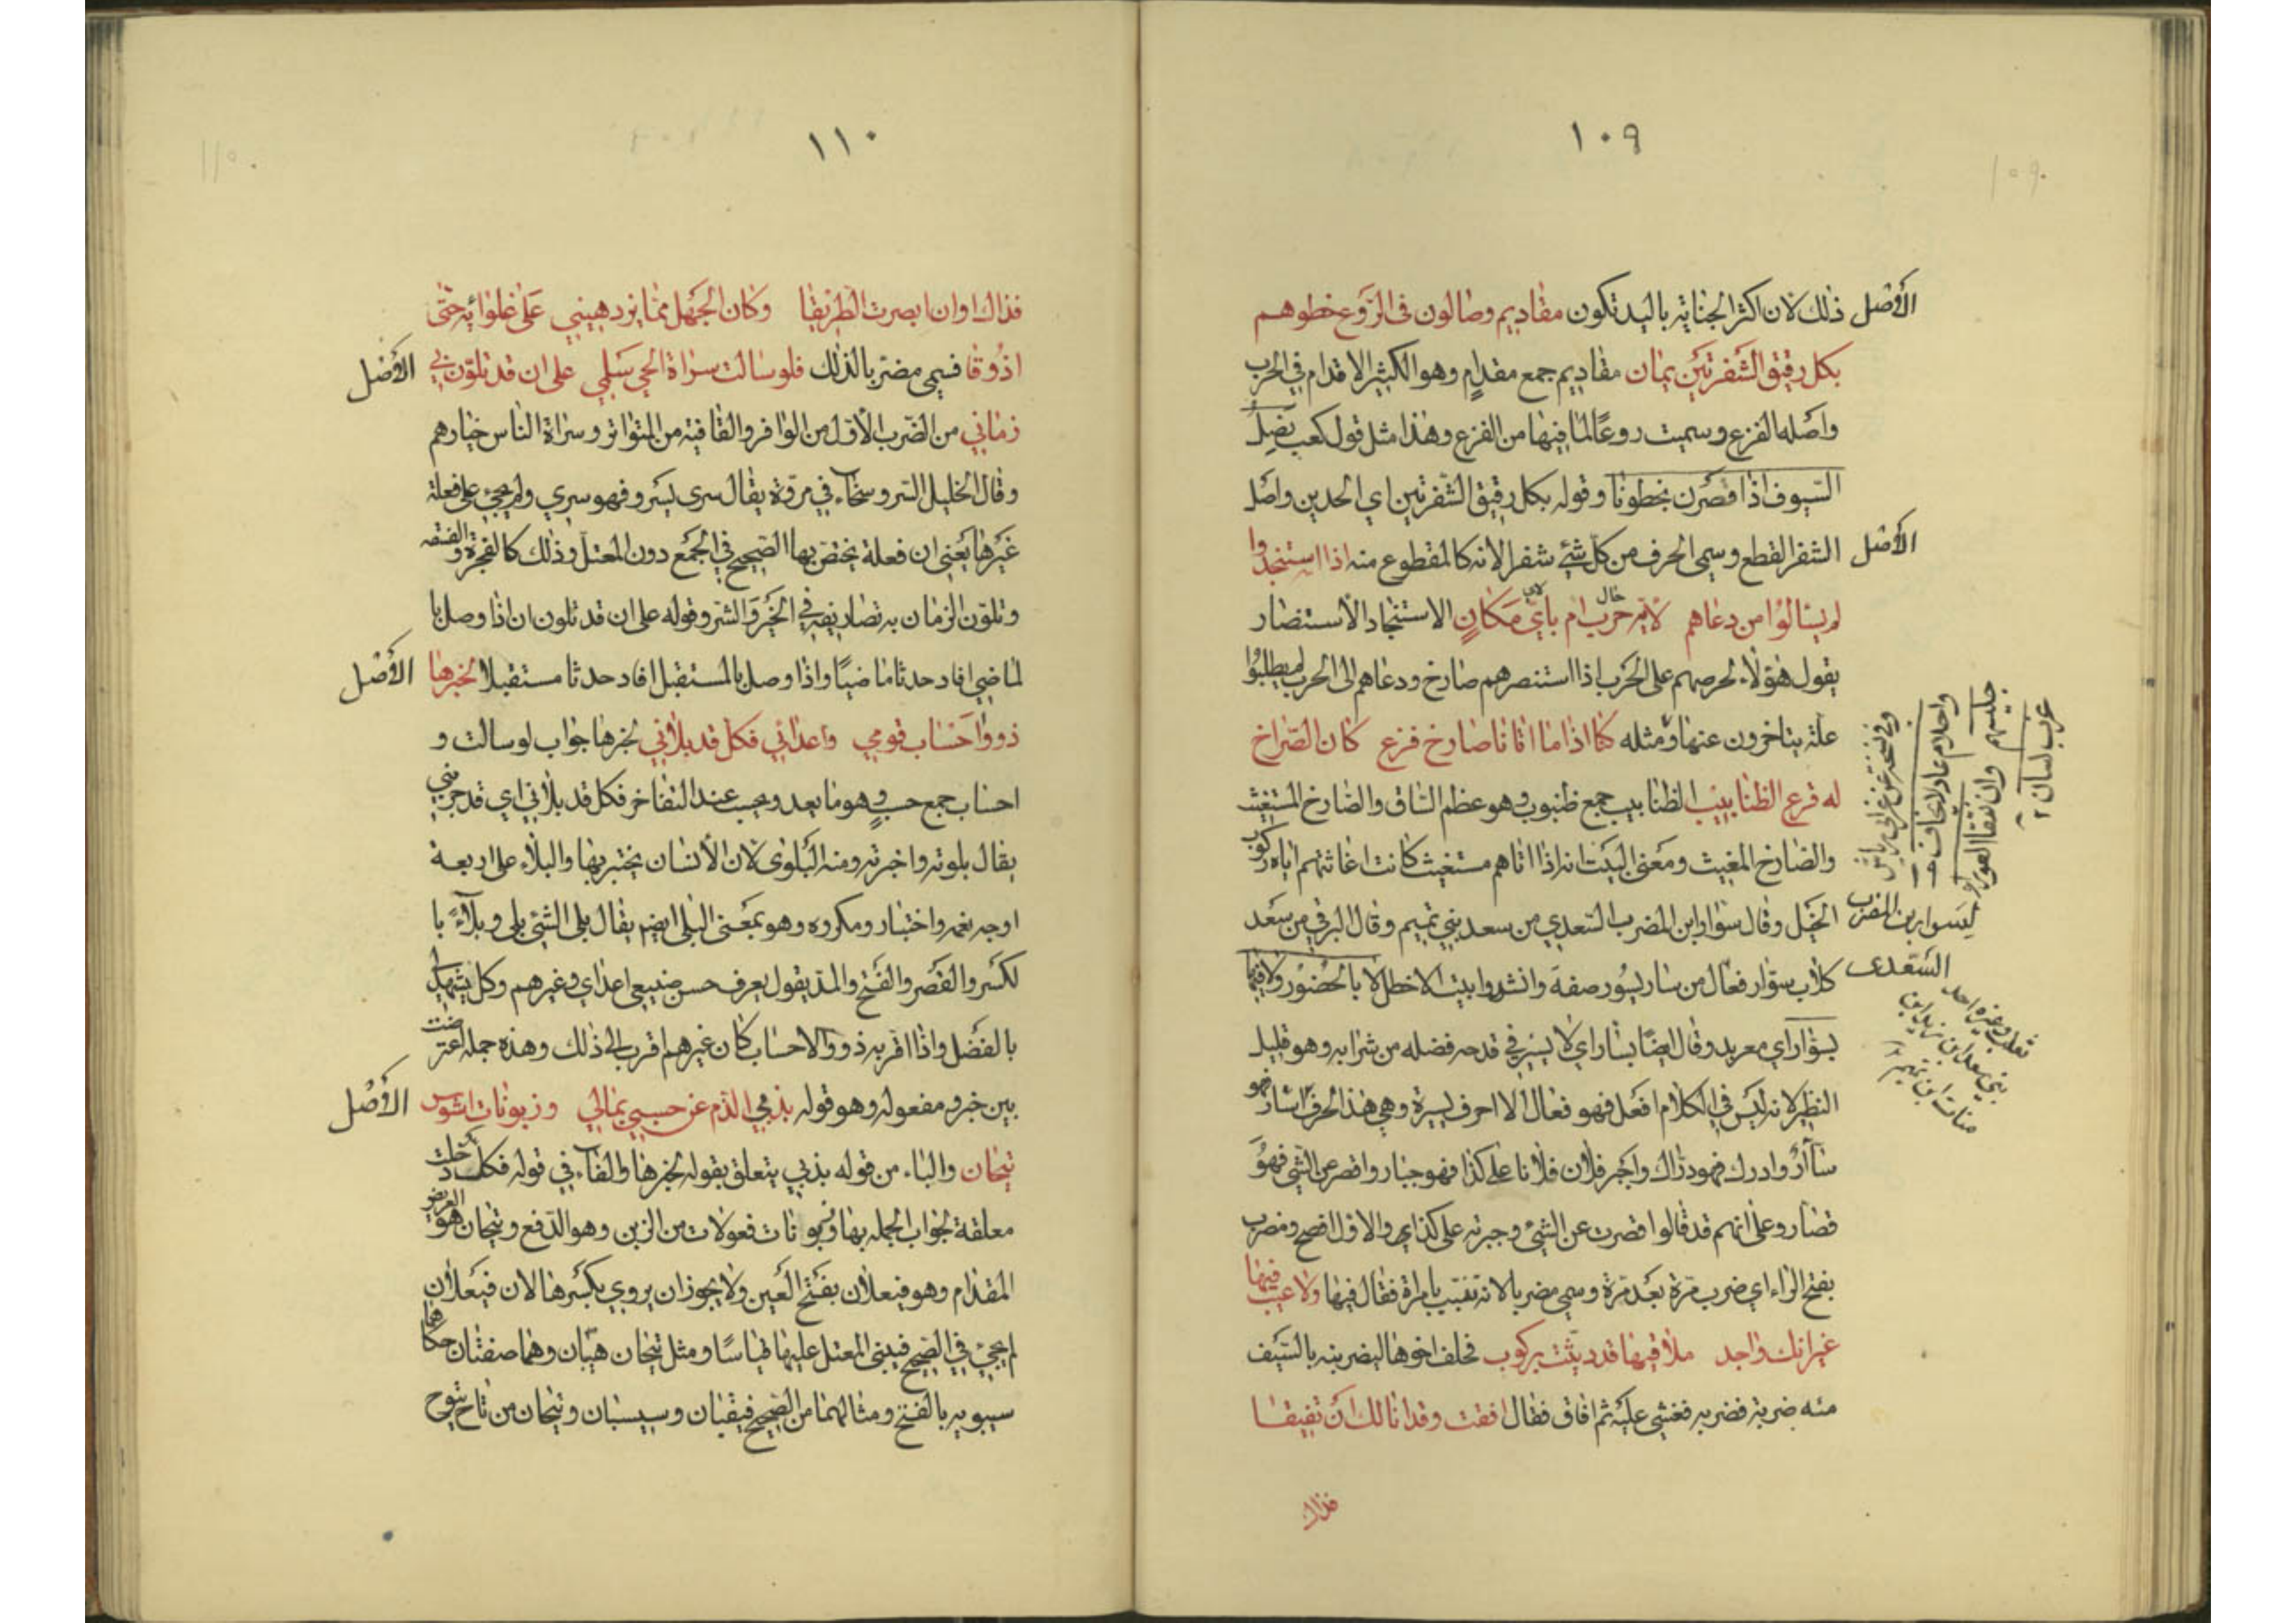 ١٠٩
الأصل
ذلك لان اكثر الجناية باليد تكون مقاديم وصالون في الروع خطوهم
بكل رقيق الشفرتين يمان مقاديم جمع مقدام وهو الكثير الاقدام في الحرب
واصله الفزع وسميت روعًا لما فيها من الفزع وهذا مثل قول كعب نصل
السيوف اذا قصرن بخطونا وقوله بكل رقيق الشفرتين اي الحدين واصل
الأصل
الشفر القطع وسمى الحرف من كل شئ شفرا لانه كالمقطوع منه اذا استنجدوا
لم يسالوا من دعاهم لاية حرب ام باي مكان الاستنجاد الاستنصار
يقول هؤلاء لحرصهم على الحرب اذا استنصرهم صارخ ودعاهم الى الحرب لم يطلبوا
علة يتاخرون عنها ومثله كنا اذا ما اتانا صارخ فزع كان الصراخ
له قرع الظنابيب الظنابيب جمع ظنبوب وهو عظم الساق والصارخ المستغيث
والصارخ المغيث ومعنى البيت انه اذا اتاهم مستغيث كانت اغاثتهم اياه ركوب
الخيل وقال سوار ابن المضرب السعدي من سعد بني تميم وقال البرقي من سعد
كلاب سوار فعال من سار يسور صفة وانشدوا بيت الاخطل لا بالحضور ولا فيها
بسوار اي معربد وقال ايضا بسار اي لا يسئر في قدحه فضله من شرابه وهو قليل
النظير لانه ليس في الكلام افعل فهو فعال الا احرف يسيرة وهي هذا الحرف اسار فهو
سأآر وادرك فهو دراك واجبر فلان فلانا على كذا فهو جبار واقصر عن الشئ فهو
قصار وعلى انهم قد قالوا قصرت عن الشئ وجبرته على كذا والاول افصح ومضرب
بفتح الراء اي ضرب مرة بعد مرة وسمي مضربا لانه تشبب بامراة فقال فيها ولا عيب فيها
غير انك واجد ملاقيها قد ديثت بركوب فحلف اخوها ليضربنه بالسيف
مئه ضربة فضربه فغشي عليه ثم افاق فقال افقت وقد انا لك ان تفيقا
فذاك
لسوار بن المضرب
السعدى
١١٠
فذاك اوان ابصرت الطريقا وكان الجهل مما يزدهيني على غلوائه حتى
اذوقا فسمي مضربا لذلك فلو سالت سراة الحي سلمي على ان قد تلون بي
الأصل
زماني من الضرب الأول من الوافر والقافية من المتواتر وسراة الناس خيارهم
وقال الخليل السرو سخاء في مروة يقال سرى يسرو فهو سري ولم يجئ على فعلة
غيرها يعني ان فعلة يختص بها الصحيح في الجمع دون المعتل وذلك كالفجرة والفسقه
وتلون الزمان به تصاريفه في الخير والشر وقوله على ان قد تلون ان اذا وصل با
لماضي افاد حدثا ماضيًا واذا وصل بالمستقبل افاد حدثا مستقبلا لخبرها
الأصل
ذووا احساب قومي واعدائي فكل قد بلاني لخبرها جواب لو سالت و
احساب جمع حسب وهو ما يعد ويحسب عند التفاخر فكل قد بلاني اي قد جربني
يقال بلوته واخبرته ومنه البلوى لان الأنسان يختبر بها والبلاء على اربعة
اوجه نعمه واختبار ومكروه وهو بمعنى البلى ايضم يقال بلى الشئ بلى وبلاءً با
لكسر والقصر والفتح والمد يقول يعرف حسن صنيعي اعداي وغيرهم وكل يشهد لي
بالفضل واذا اقر به ذووا الاحساب كان غيرهم اقرب الى ذلك وهذه جملة اعترضت
بين خبر ومفعوله وهو قوله بذبي الذم عن حسبي بمالي وزبونات اشوس
الأصل
تيحان والباء من قوله بذبي يتعلق بقوله لخبرها والفاء في قوله فكل دخلت
معلقة لجواب الجمله بها وزبونات فعولات من الزبن وهو الدفع وتيحان هو العريض
المقدام وهو فيعلان بفتح العين ولا يجوز ان يروي بكسرها لان فيعلان
لم يجئ في الصحيح فيبنى المعتل عليها قياسًا ومثل تيحان هيبان وهما صفتان حكاهما
سيبويه بالفتح ومثالهما من الصحيح فيقبان وسيسبان وتيحان من تاح يتوح